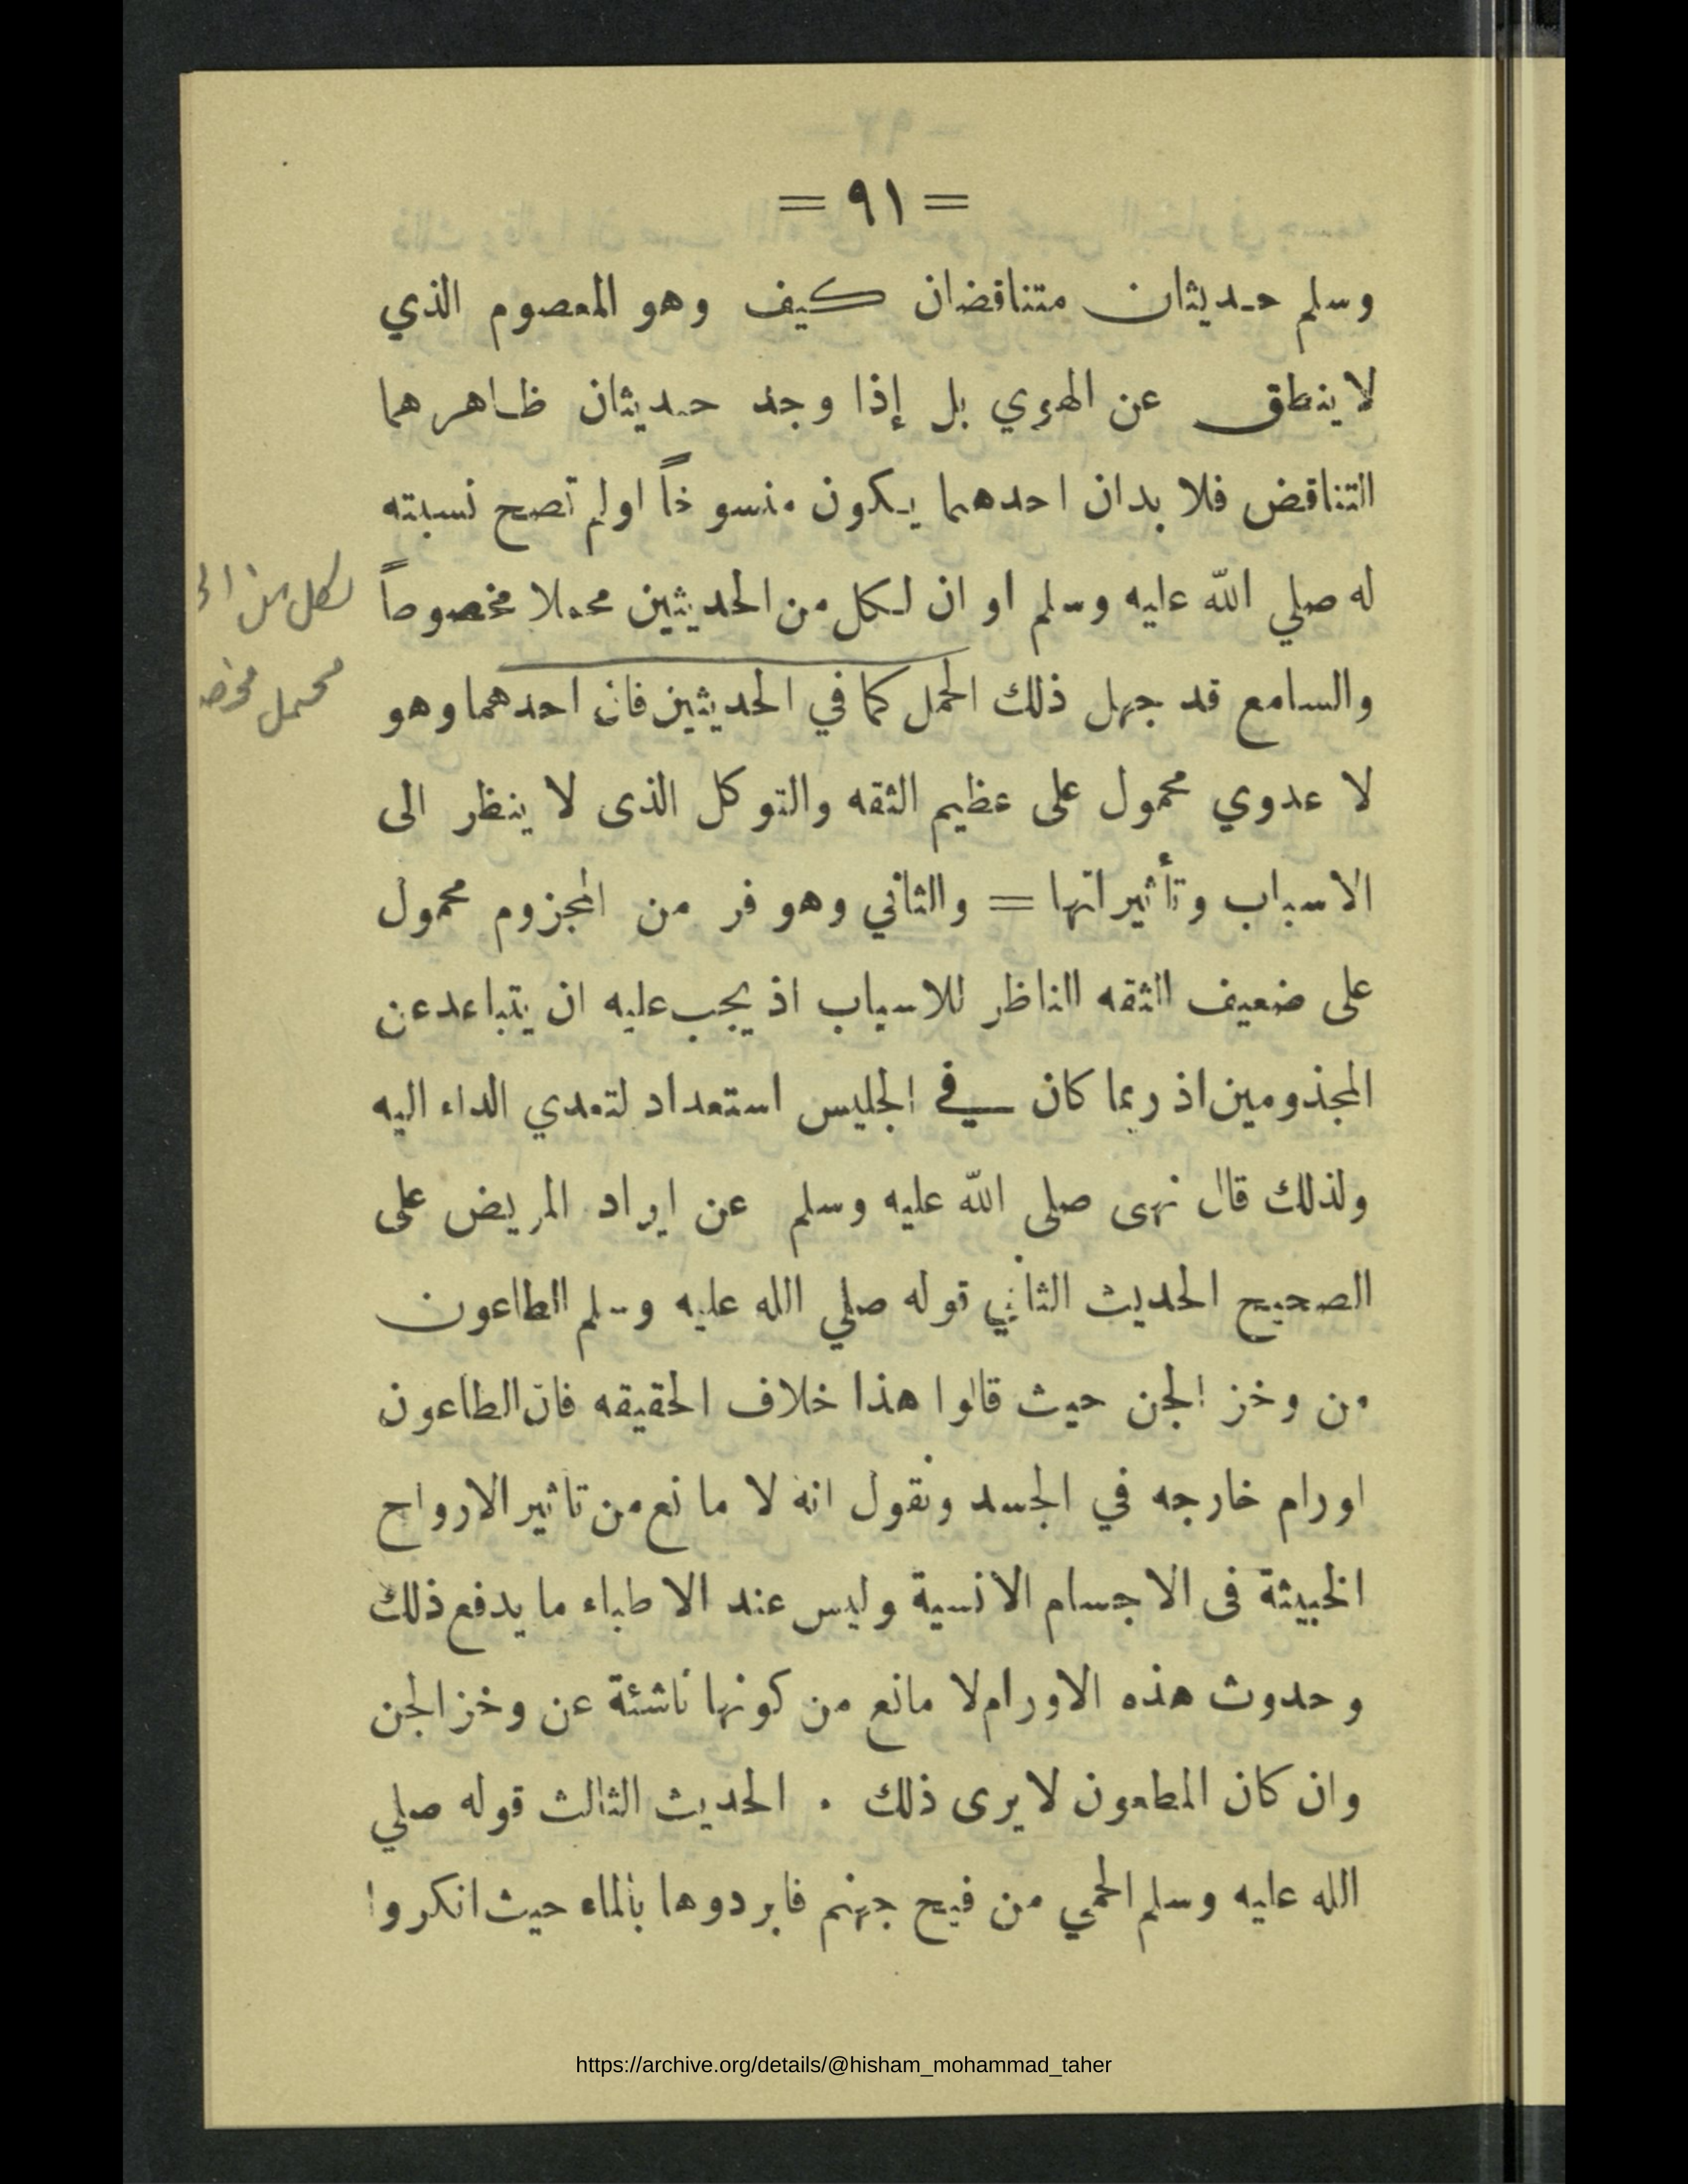 = ٩١ =
وسلم حديثان متناقضان كيف وهو المعصوم الذي
لا ينطق عن الهوي بل إذا وجد حديثان ظاهرهما
التناقض فلا بدان احدهما يكون منسوخاً اولم تصح نسبته
له صلي الله عليه وسلم او ان لكل من الحديثين محملا مخصوصاً
لكل من
محمل
والسامع قد جهل ذلك الحمل كما في الحديثين فان احدهما وهو
لا عدوي محمول على عظيم الثقه والتوكل الذى لا ينظر الى
الاسباب وتأثيراتها = والثاني وهو فر من المجزوم محمول
على ضعيف الثقه الناظر للاسباب اذ يجب عليه ان يتباعد عن
المجذومين اذ ربما كان في الجليس استعداد لتعدي الداء اليه
ولذلك قال نهى صلى الله عليه وسلم عن ايراد المريض على
الصحيح الحديث الثاني قوله صلي الله عليه وسلم الطاعون
من وخز الجن حيث قالوا هذا خلاف الحقيقه فان الطاعون
اورام خارجه في الجسد ونقول انه لا مانع من تاثير الارواح
الخبيثة فى الاجسام الانسية وليس عند الاطباء ما يدفع ذلك
وحدوث هذه الاورام لا مانع من كونها ناشئة عن وخز الجن
وان كان المطعون لا يرى ذلك . الحديث الثالث قوله صلي
الله عليه وسلم الحمي من فيح جهنم فابردوها بالماء حيث انكروا
https://archive.org/details/@hisham_mohammad_taher